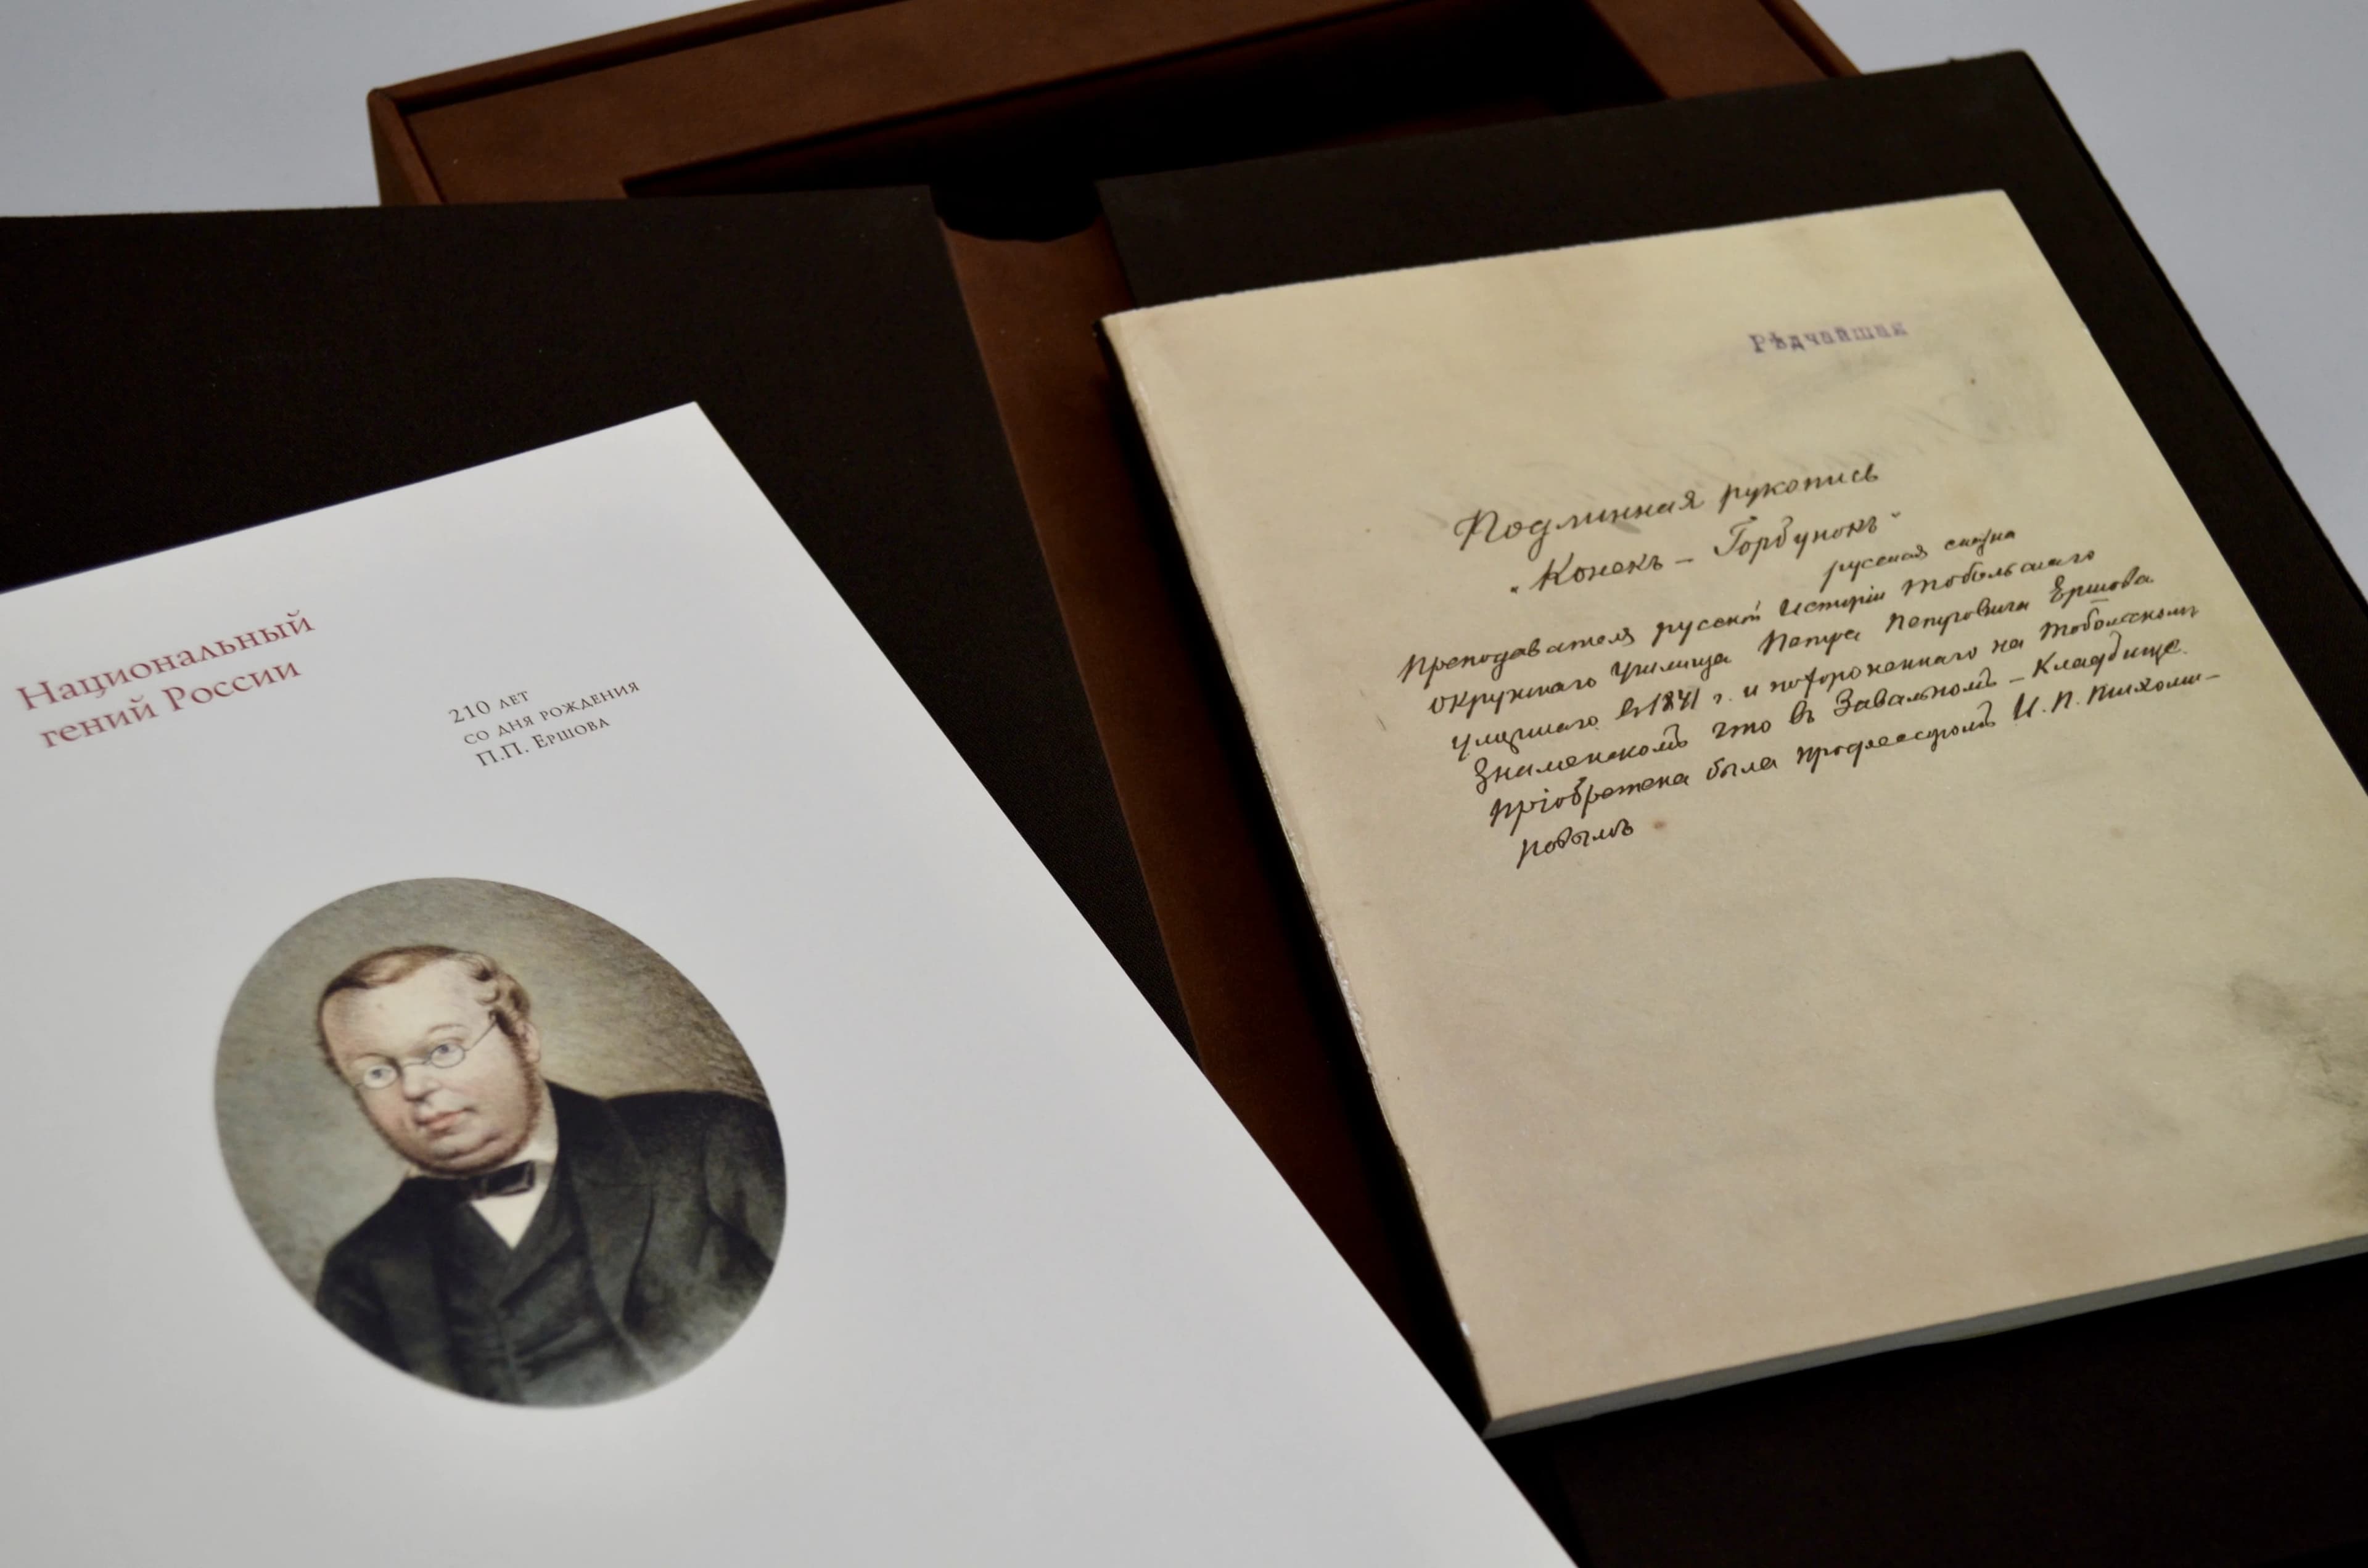 Национальный
гений России
210 лет
со дня рождения
П.П. Ершова
Рѣдчайшая
Подлинная рукопись
"Конекъ – Горбунокъ"
русская сказка
Преподавателя русской Исторіи Тобольскаго
Окружнаго Училища Петра Петровича Ершова
Умершаго въ 1871 г. и похороненнаго на Тобольскомъ
Знаменскомъ что въ Завальномъ – Кладбище.
Пріобретена была Профессоромъ И. П. Тихоми-
ровымъ